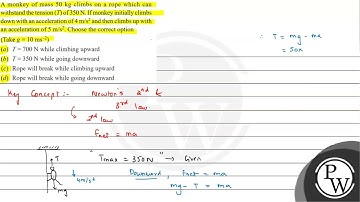 A monkey of mass 50 kg climbs on a rope which can
withstand the tension (T) of 350 N. If monkey initially climbs
down with an acceleration of 4 m/s² and then climbs up with
an acceleration of 5 m/s². Choose the correct option
(Take g = 10 ms⁻²)
(a) T = 700 N while climbing upward
(b) T = 350 N while going downward
(c) Rope will break while climbing upward
(d) Rope will break while going downward
∴ T = mg - ma
= 50×
Key Concept :- Newton's 2nd &
3rd law
2nd law
Fnet = ma
"Tmax = 350N" → Given
Downward, Fnet = ma
mg - T = ma
T
4m/s²
mg
PW
PW